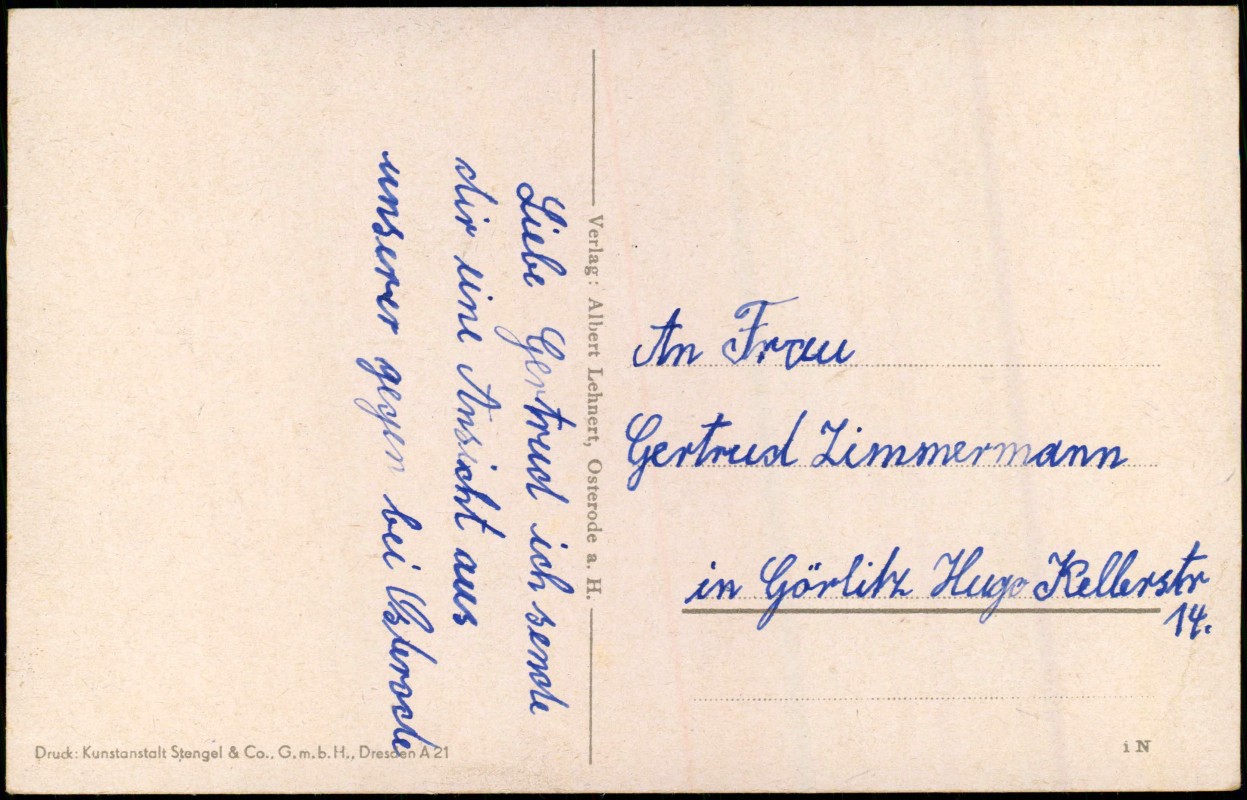 Liebe Gertrud ich sende
dir eine Ansicht aus
unserer gegen bei Osterode
Verlag: Albert Lehnert, Osterode a. H.
An Frau
Gertrud Zimmermann
in Görlitz Hugo Kellerstr
14.
Druck: Kunstanstalt Stengel & Co., G.m.b.H., Dresden A 21
i N